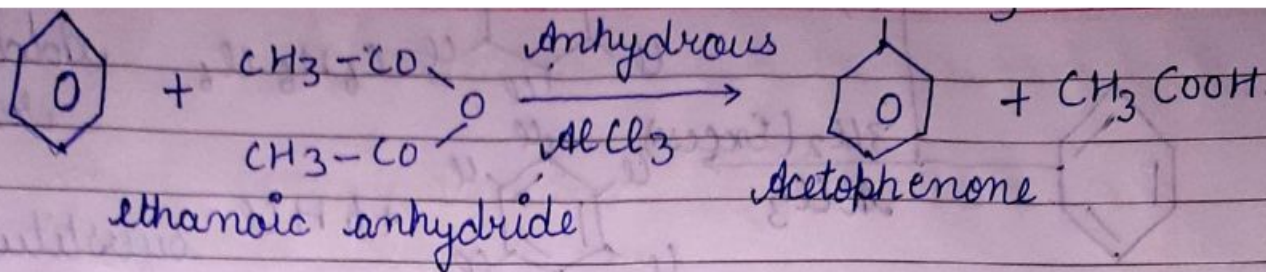 + CH3-CO O CH3-CO Anhydrous AlCl3 + CH3 COOH
ethanoic anhydride Acetophenone